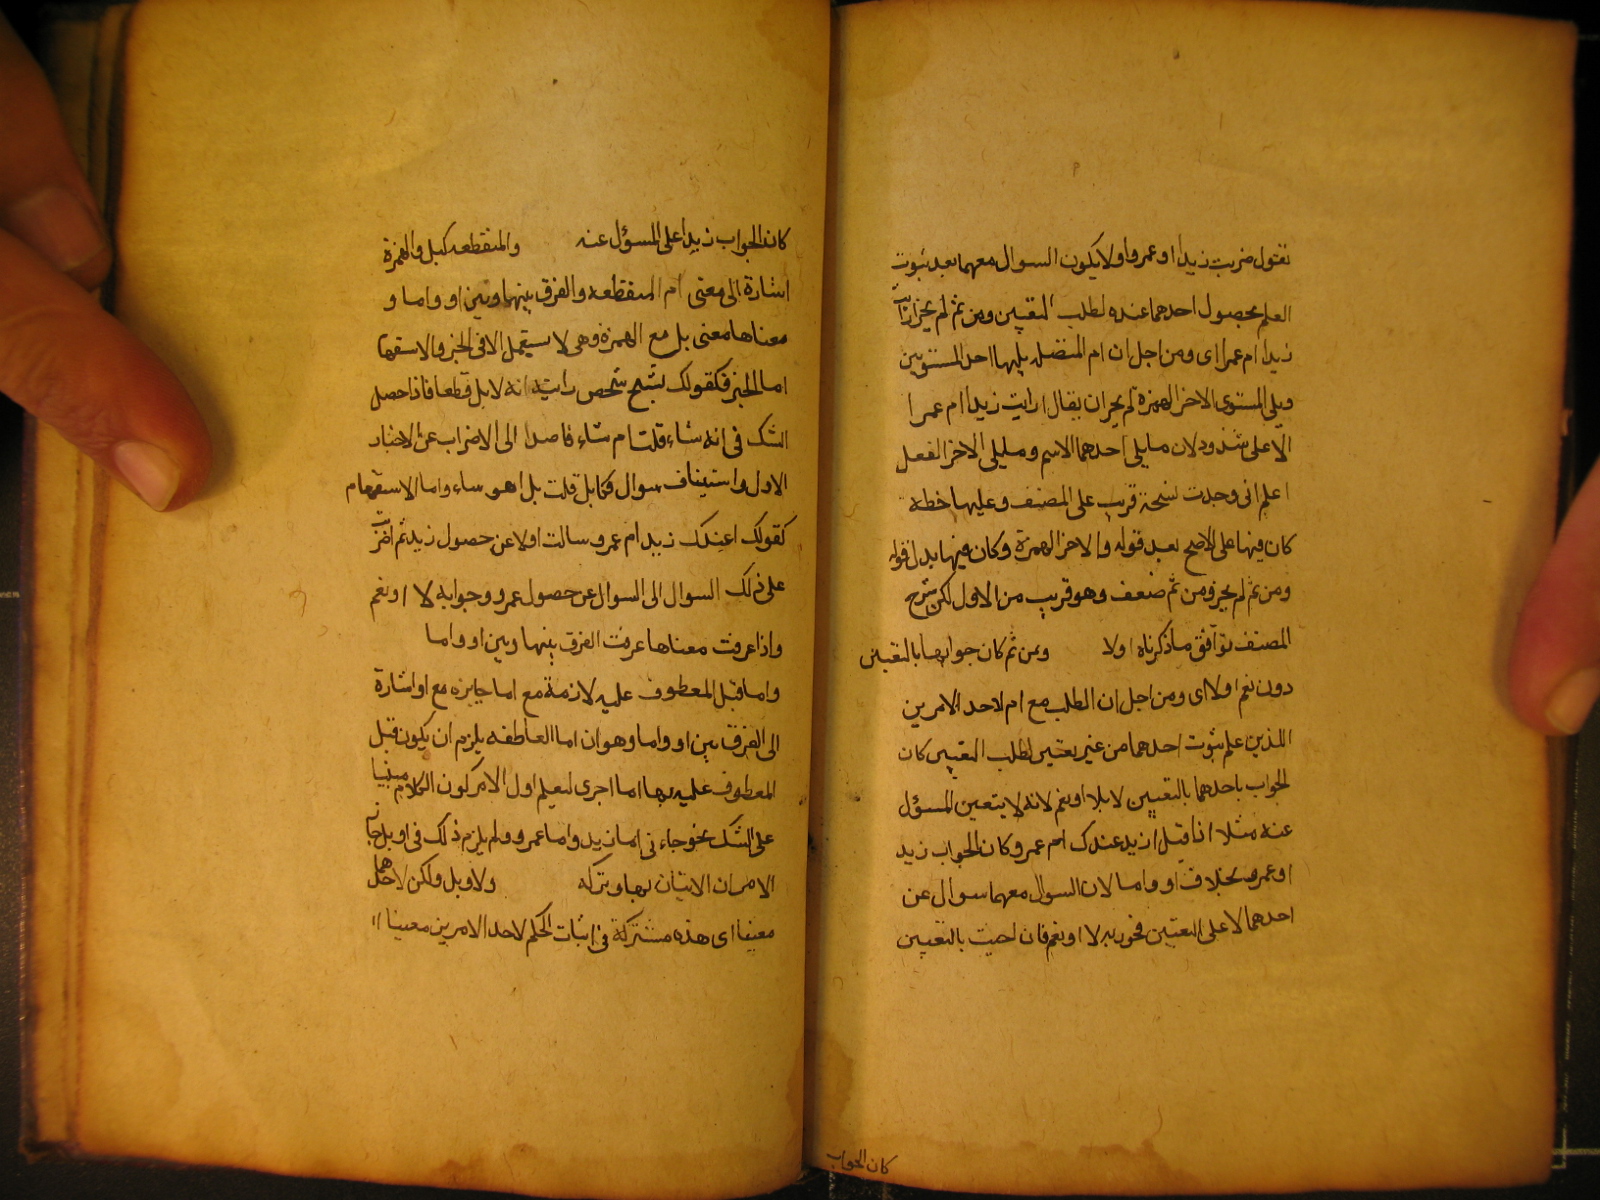 نقول ضربت زيدا او عمروا ولا يكون السوال معهما بعد ثبوت
العلم بحصول احدهما عنده لطلب التعيين ومن ثم لم يجز ارايت
زيدا ام عمرا اى ومن اجل ان ام المتصلة يليها احد المستويين
ويلى المستوى الاخر الهمزة لم يجز ان يقال ارايت زيدا ام عمرا
الا على شذوذ لان ما يلى احدهما الاسم وما يلى الاخر الفعل
اعلم انى وجدت نسخة قريب على المصنف وعليها خطه
كان فيها على الاصح بعد قوله والاخر الهمزة وكان فيها بدل قوله
ومن ثم لم يجز ومن ثم ضعف وهو قريب من الاول لكن شرح
المصنف توافق ما ذكرناه اولا ومن ثم كان جوابها بالتعيين
دون نعم او لا اى ومن اجل ان الطلب مع ام لاحد الامرين
الذين علم ثبوت احدهما من غير تعيين لطلب التعيين كان
الجواب باحدهما بالتعيين لا بلا او نعم لانه لا يتعين المسؤل
عنه مثلا اذا قيل ازيد عندك ام عمرو كان الجواب زيد
او عمرو بخلاف او واما لان السوال معهما سوال عن
احدهما لا على التعيين بلا او نعم فان اجيب بالتعيين
كان الجواب
كان الجواب زيدا على المسؤل عنه والمنقطعه كبل والهمزة
اشارة الى معنى ام المنقطعه والفرق بينها وبين او واما و
معناها معنى بل مع الهمزة وهى لا يستعمل الا فى الخبر والاستفها
اما الخبر فكقولك لشبح شخص رايته انه لابل قطعا فاذا حصل
الشك فى انه شاء قلت ام شاء قاصدا الى الاضراب عن الاخبار
الاول واستيناف سوال فكا بل قلت بل اهو ساء واما الاستفهام
كقولك اعندك زيد ام عمرو سالت اولا عن حصول زيد ثم اضربت
على ذلك السوال الى السوال عن حصول عمرو وجوابه لا او نعم
واذا عرفت معناها عرفت الفرق بينها وبين او واما
واما قبل المعطوف عليه لازمة مع اما جايزه مع او اشارة
الى الفرق بين او واما وهو ان اما العاطفه يلزم ان يكون قبل
المعطوف عليه بها اما اجرى ليعلم اول الامر كون الكلام مبنيا
على الشك نحو جاءنى اما زيد واما عمرو ولم يلزم ذلك فى او بل جاز
الامران الاتيان بها وتركه ولا وبل ولكن لاحدهما
معينا اى هذه مشتركة فى اثبات الحكم لاحد الامرين معينا